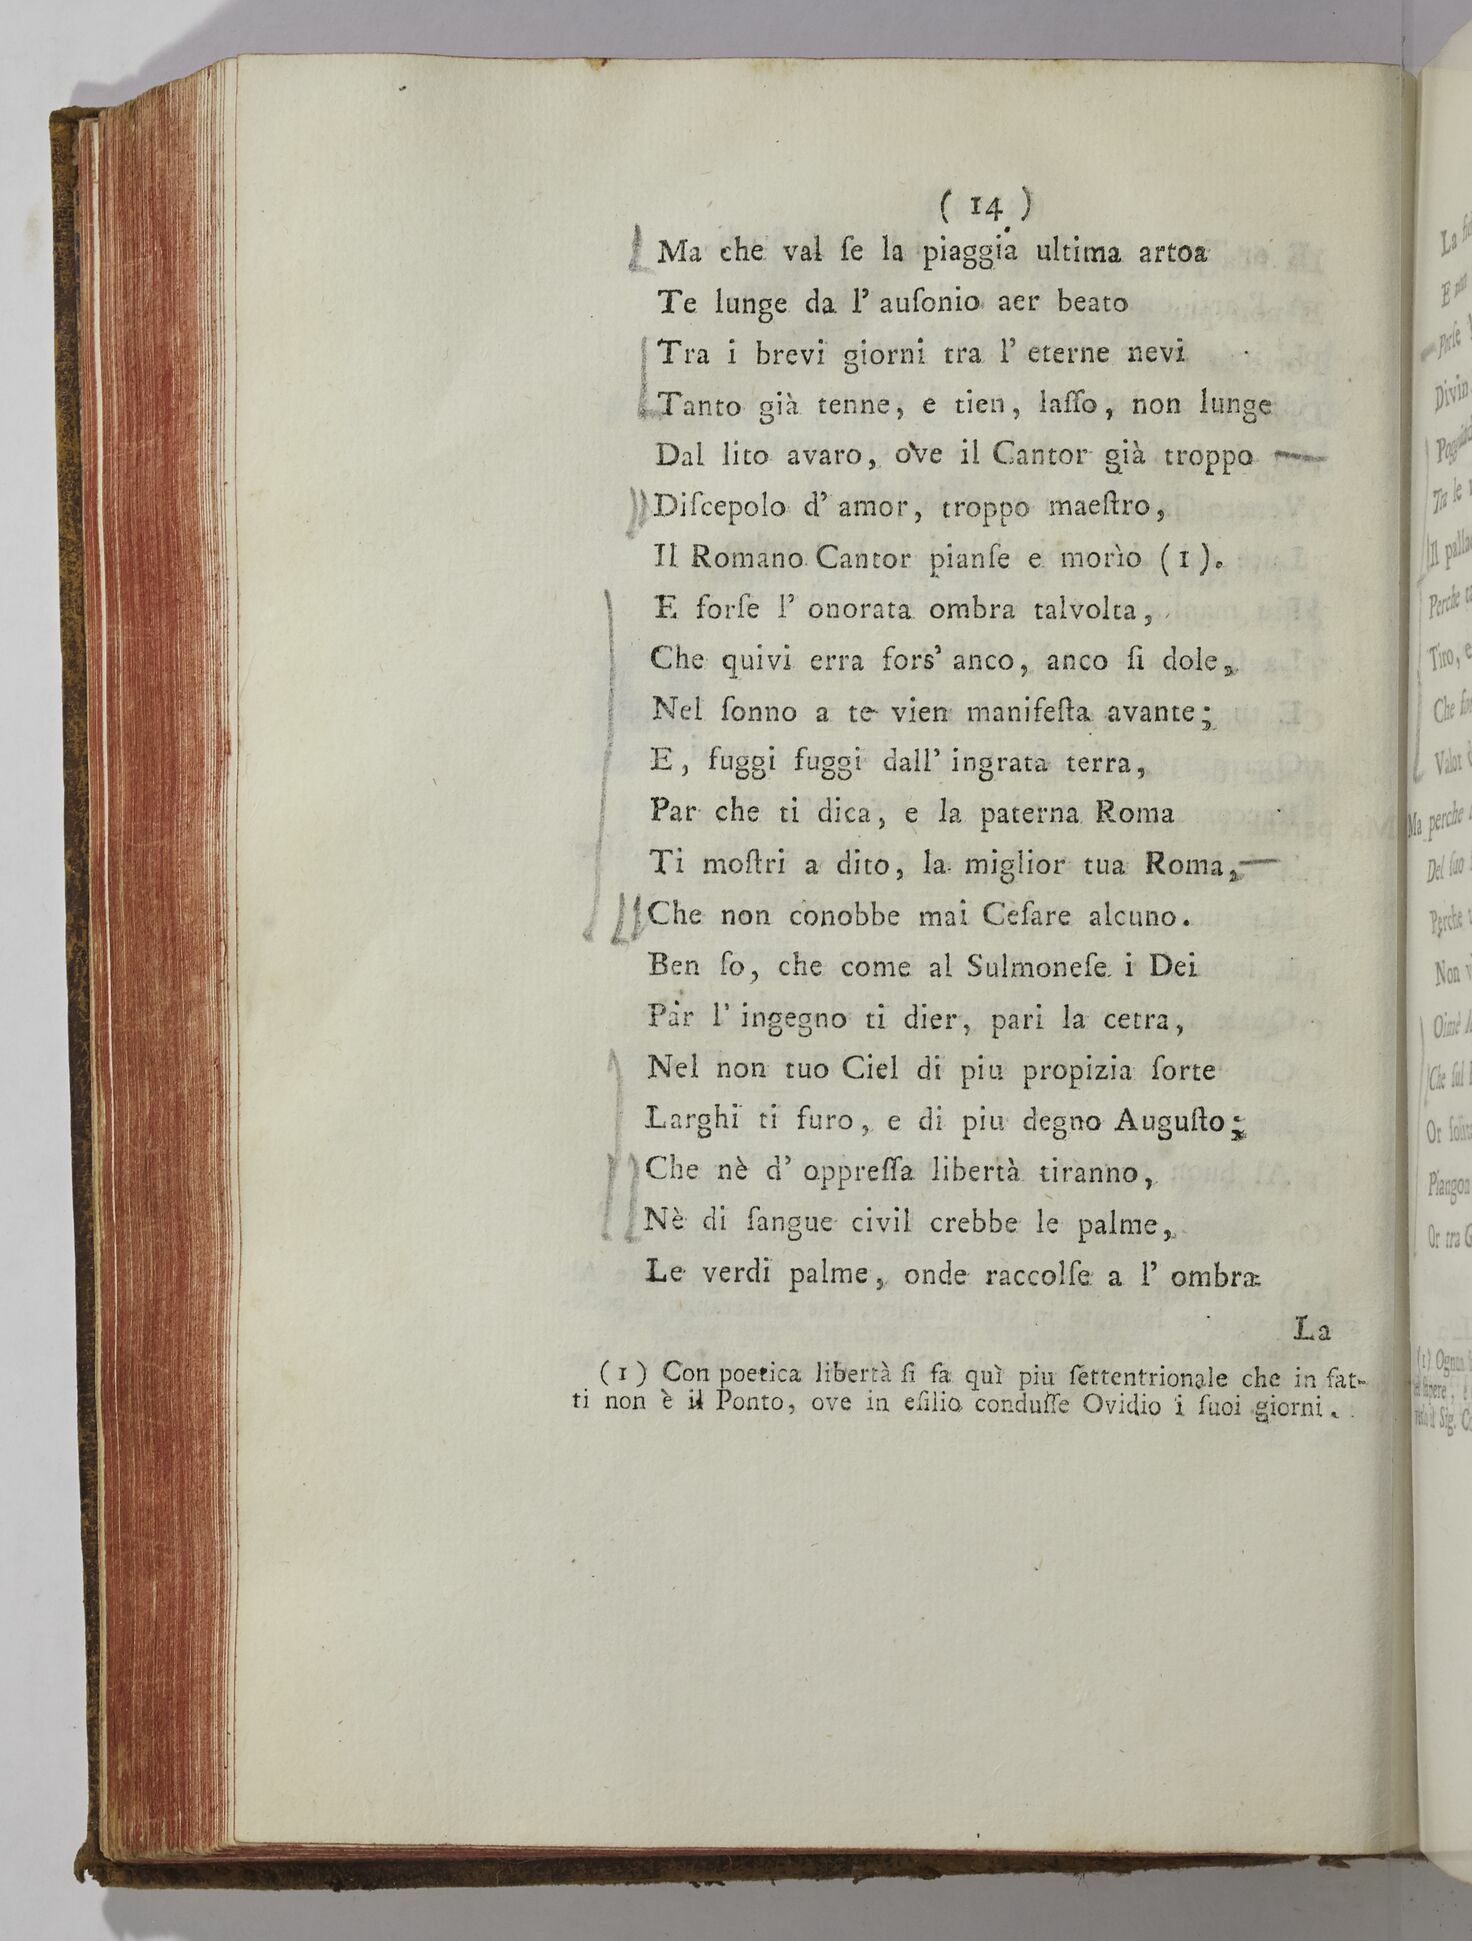 ( 14 )
Ma che val ſe la piaggia ultima artoa
Te lunge da l' auſonio aer beato
Tra i brevi giorni tra l' eterne nevi
Tanto già tenne, e tien, laſſo, non lunge
Dal lito avaro, ove il Cantor già troppo
Diſcepolo d' amor, troppo maeſtro,
Il Romano Cantor pianſe e morìo (1).
E forſe l' onorata ombra talvolta,
Che quivi erra fors' anco, anco ſi dole,
Nel ſonno a te vien manifeſta avante;
E, fuggi fuggi dall' ingrata terra,
Par che ti dica, e la paterna Roma
Ti moſtri a dito, la miglior tua Roma,
Che non conobbe mai Ceſare alcuno.
Ben ſo, che come al Sulmoneſe i Dei
Par l' ingegno ti dier, pari la cetra,
Nel non tuo Ciel di piu propizia ſorte
Larghi ti furo, e di piu degno Auguſto;
Che nè d' oppreſſa libertà tiranno,
Nè di ſangue civil crebbe le palme,
Le verdi palme, onde raccolſe a l' ombra
La
(1) Con poetica libertà ſi fa quì piu ſettentrionale che in fat-
ti non è il Ponto, ove in eſilio conduſſe Ovidio i ſuoi giorni.
La
E
Divin
Il
Perche
Tiro, e
Che
Valor
Ma perche
Del ſuo
Perchè
Non
Oimè
Che ſul
Or
Piangon
Or tra
(1)